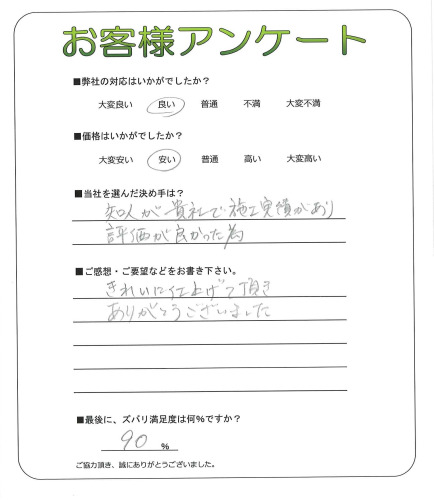 お客様アンケート
■弊社の対応はいかがでしたか?
大変良い 良い 普通 不満 大変不満
■価格はいかがでしたか?
大変安い 安い 普通 高い 大変高い
■当社を選んだ決め手は?
知人が貴社で施工実績があり
評価が良かった為
■ご感想・ご要望などをお書き下さい。
きれいに仕上げて頂き
ありがとうございました
■最後に、ズバリ満足度は何%ですか?
90 %
ご協力頂き、誠にありがとうございました。